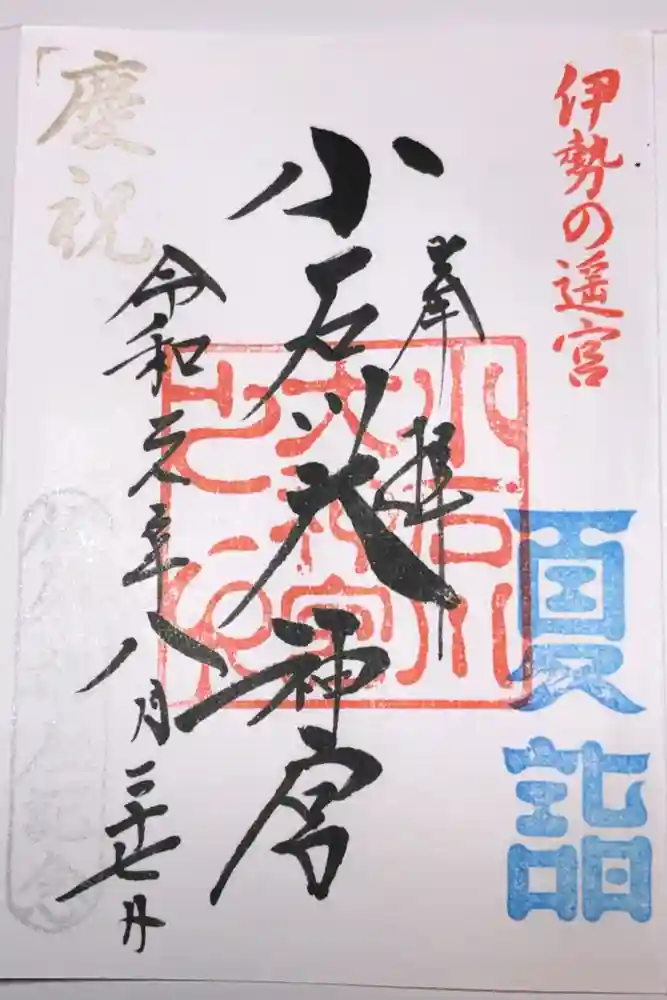 伊勢の遥宮
夏詣
奉拝
小石川大神宮
小石川
大神宮
令和元年八月二十七日
慶祝